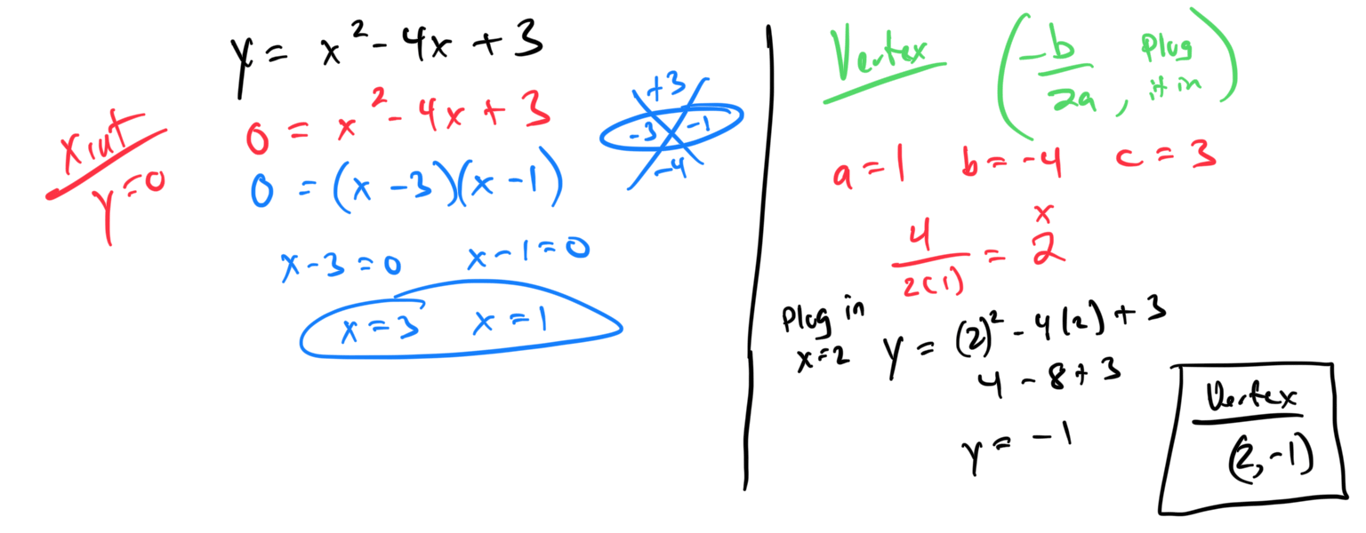 y = x² - 4x + 3
x int
y = 0
0 = x² - 4x + 3
0 = (x - 3)(x - 1)
+3
-3 -1
-4
x - 3 = 0 x - 1 = 0
x = 3 x = 1
Vertex (-b/2a, plug it in)
a = 1 b = -4 c = 3
x
4/2(1) = 2
Plug in
x = 2
y = (2)² - 4(2) + 3
4 - 8 + 3
y = -1
Vertex
(2, -1)